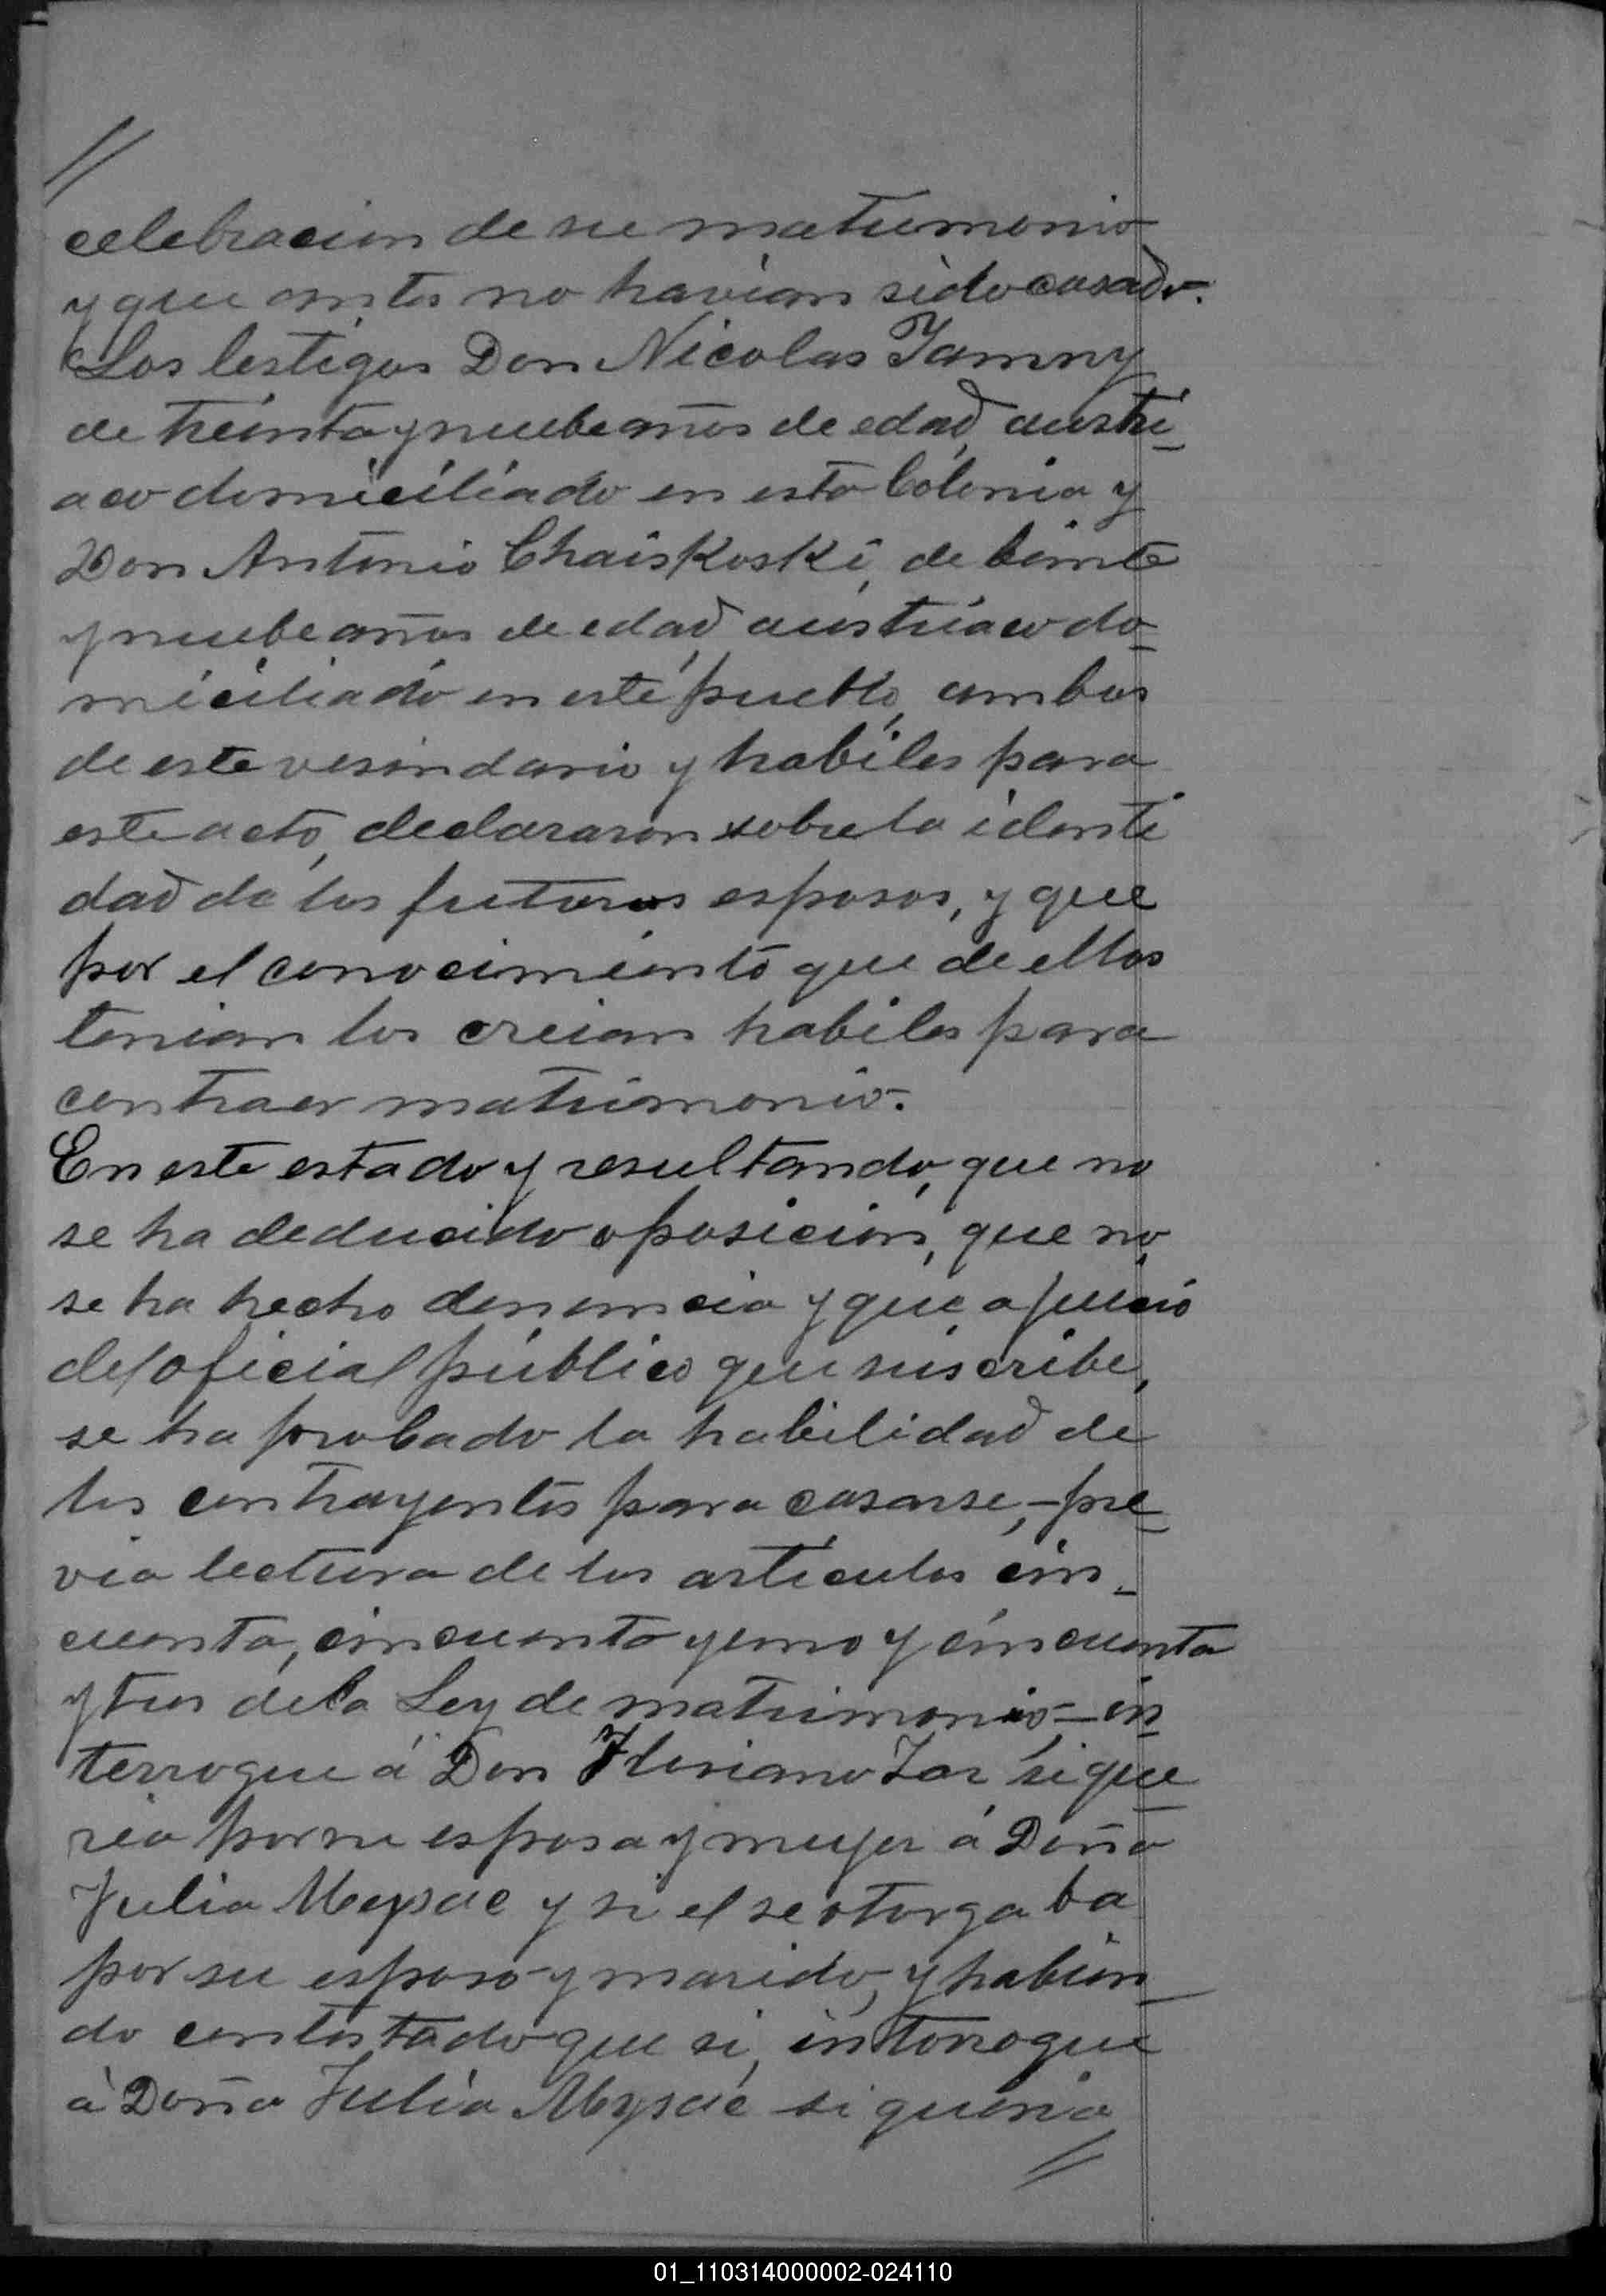 //
celebracion de su matrimonio
y que antes no havian sido casado.
Los testigos Don Nicolas Tamny
de treinta y nuebe años de edad, austri
aco domiciliado en esta Colonia y
Don Antonio Chaiskoski, de beinte
y nuebe años de edad, austriaco do-
miciliado en este pueblo, ambos
de este vesindario y habiles para
este acto, declararon sobre la identi
dad de los futuros esposos, y que
por el conocimiento que de ellos
tenian los creian habiles para
contraer matrimonio.
En este estado y resultando, que no
se ha deducido oposicion, que no
se ha hecho denuncia y que, a juicio
del oficial público que suscribe,
se ha probado la habilidad de
los contrayentes para casarse, - pre
via lectura de los articulos cin-
cuenta, cincuenta y uno y cincuenta
y tres de la Ley de matrimonio - in
terrogue á Don Floriano Zar si que
ria por su esposa y mujer á Doña
Julia Mysac y si el se otorgaba
por su esposo y marido, y habien
do contestado que si, interrogue
á Doña Julia Mysac si queria
//
01_110314000002-024110